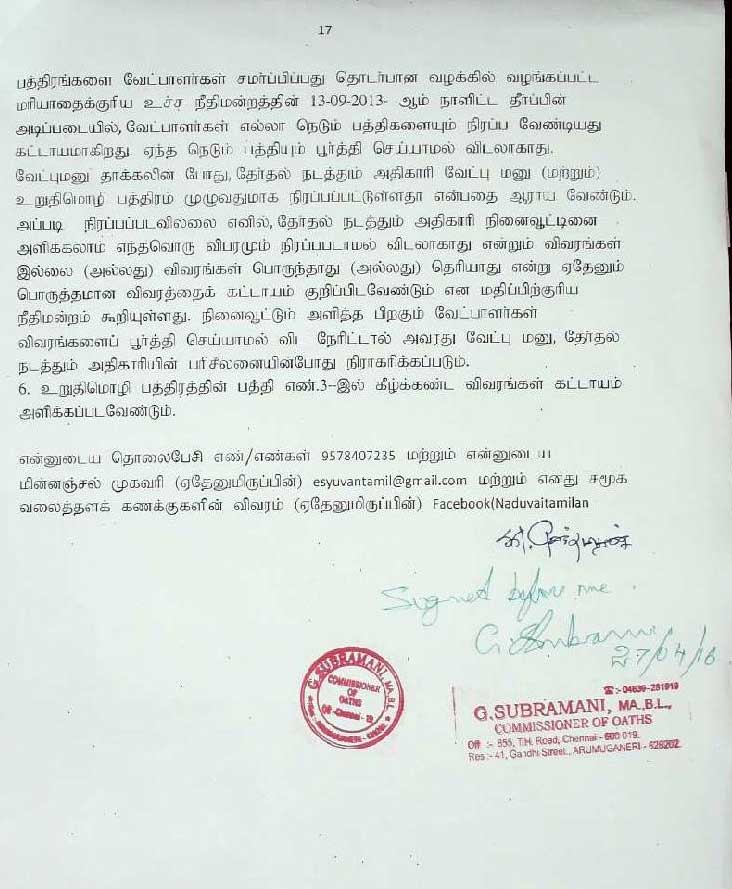 17
பத்திரங்களை வேட்பாளர்கள் சமர்ப்பிப்பது தொடர்பான வழக்கில் வழங்கப்பட்ட
மரியாதைக்குரிய உச்ச நீதிமன்றத்தின் 13-09-2013- ஆம் நாளிட்ட தீர்ப்பின்
அடிப்படையில், வேட்பாளர்கள் எல்லா நெடும் பத்திகளையும் நிரப்ப வேண்டியது
கட்டாயமாகிறது ஏந்த நெடும் பத்தியும் பூர்த்தி செய்யாமல் விடலாகாது.
வேட்புமனு தாக்கலின் போது, தேர்தல் நடத்தும் அதிகாரி வேட்பு மனு (மற்றும்)
உறுதிமொழி பத்திரம் முழுவதுமாக நிரப்பப்பட்டுள்ளதா என்பதை ஆராய வேண்டும்.
அப்படி நிரப்பப்படவில்லை எனில், தேர்தல் நடத்தும் அதிகாரி நினைவூட்டினை
அளிக்கலாம் எந்தவொரு விபரமும் நிரப்படாமல் விடலாகாது என்றும் விவரங்கள்
இல்லை (அல்லது) விவரங்கள் பொருந்தாது (அல்லது) தெரியாது என்று ஏதேனும்
பொருத்தமான விவரத்தைக் கட்டாயம் குறிப்பிடவேண்டும் என மதிப்பிற்குரிய
நீதிமன்றம் கூறியுள்ளது. நினைவூட்டும் அளித்த பிறகும் வேட்பாளர்கள்
விவரங்களைப் பூர்த்தி செய்யாமல் விட நேரிட்டால் அவரது வேட்பு மனு, தேர்தல
நடத்தும் அதிகாரியின் பரிசீலனையின்போது நிராகரிக்கப்படும்.
6. உறுதிமொழி பத்திரத்தின் பத்தி எண்.3-இல் கீழ்க்கண்ட விவரங்கள் கட்டாயம்
அளிக்கப்படவேண்டும்.
என்னுடைய தொலைபேசி எண்/எண்கள் 9578407235 மற்றும் என்னுடைய
மின்னஞ்சல் முகவரி (ஏதேனுமிருப்பின்) esyuvantamil@gmail.com மற்றும் எனது சமூக
வலைத்தளக் கணக்குகளின் விவரம் (ஏதேனுமிருப்பின்) Facebook(Naduvaitamilan
Signed before me.
G. Subramani
27/04/16
G. SUBRAMANI, MA.B.L.
COMMISSIONER
OF
OATHS
Off -Chennai - 19
☎:- 04639-281919
G.SUBRAMANI, MA.,B.L.,
COMMISSIONER OF OATHS
Off :- 855, T.H. Road, Chennai - 600 019.
Res :- 41, Gandhi Street., ARUMUGANERI - 628202.